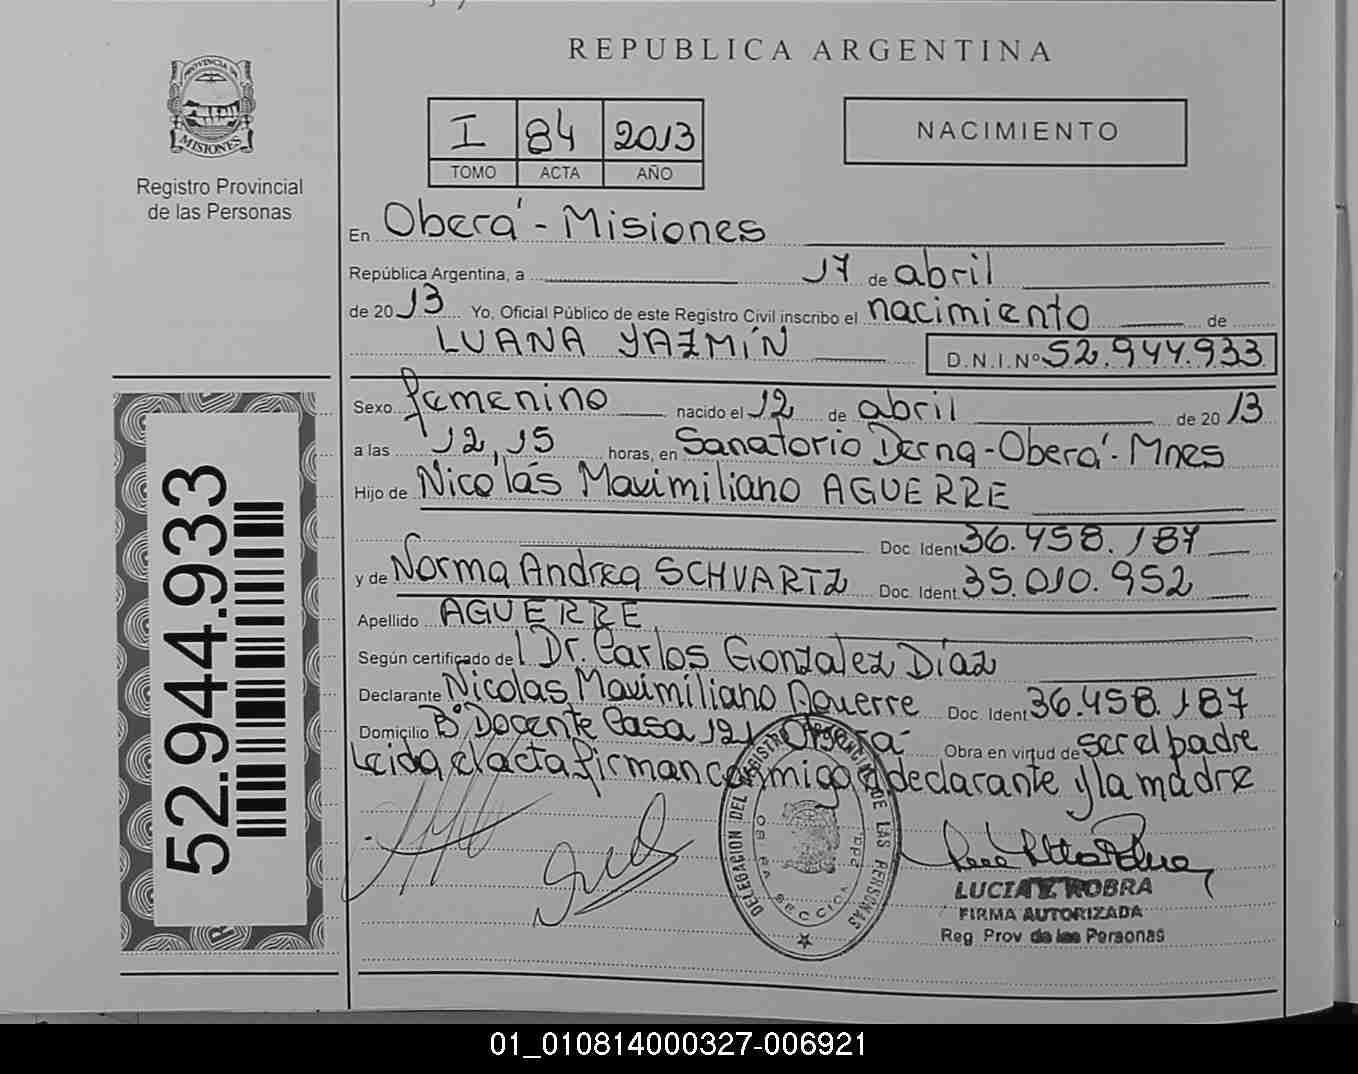 REPUBLICA ARGENTINA
PROVINCIA DE
MISIONES
Registro Provincial
de las Personas
I 84 2013
TOMO ACTA AÑO
NACIMIENTO
En Oberá - Misiones
República Argentina, a 17 de abril
de 2013 Yo, Oficial Público de este Registro Civil inscribo el nacimiento de
LUANA YAZMÍN D.N.I. Nº 52.944.933
Sexo femenino nacido el 12 de abril de 2013
a las 12,15 horas, en Sanatorio Derna - Oberá - Mnes
Hijo de Nicolás Maximiliano AGUERRE
Doc. Ident 36.458.187
y de Norma Andrea SCHVARTZ Doc. Ident. 35.010.952
Apellido AGUERRE
Según certificado del Dr. Carlos Gonzalez Díaz
Declarante Nicolas Maximiliano Aguerre Doc. Ident 36.458.187
Domicilio Bº Docente Casa 121 Oberá Obra en virtud de ser el padre
Leida el acta firman conmigo el declarante y la madre
DELEGACION DEL REGISTRO PROVINCIAL DE LAS PERSONAS
OBERA SECCION
LUCIA ROBRA
FIRMA AUTORIZADA
Reg Prov de las Personas
52.944.933
01_010814000327-006921